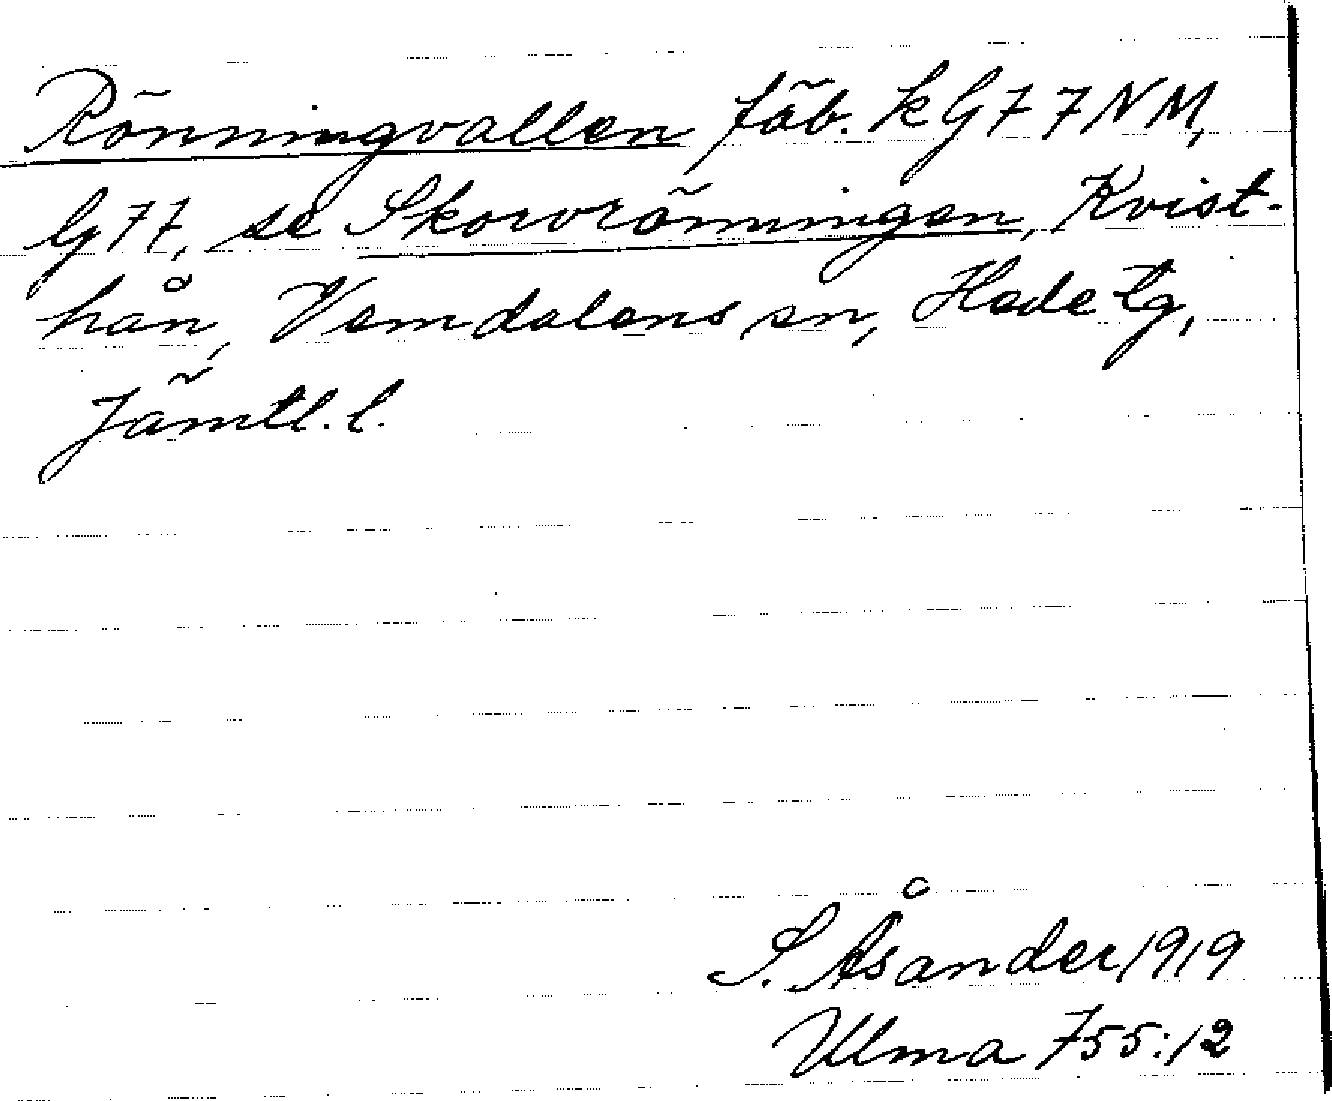 Rönningvallen fäb. k G77NM,
G77, se Skorvrönningen, Kvist-
hån, Vemdalens sn, Hede tg,
Jämtl. l.
S. Åsander 1919
Ulma 755:12